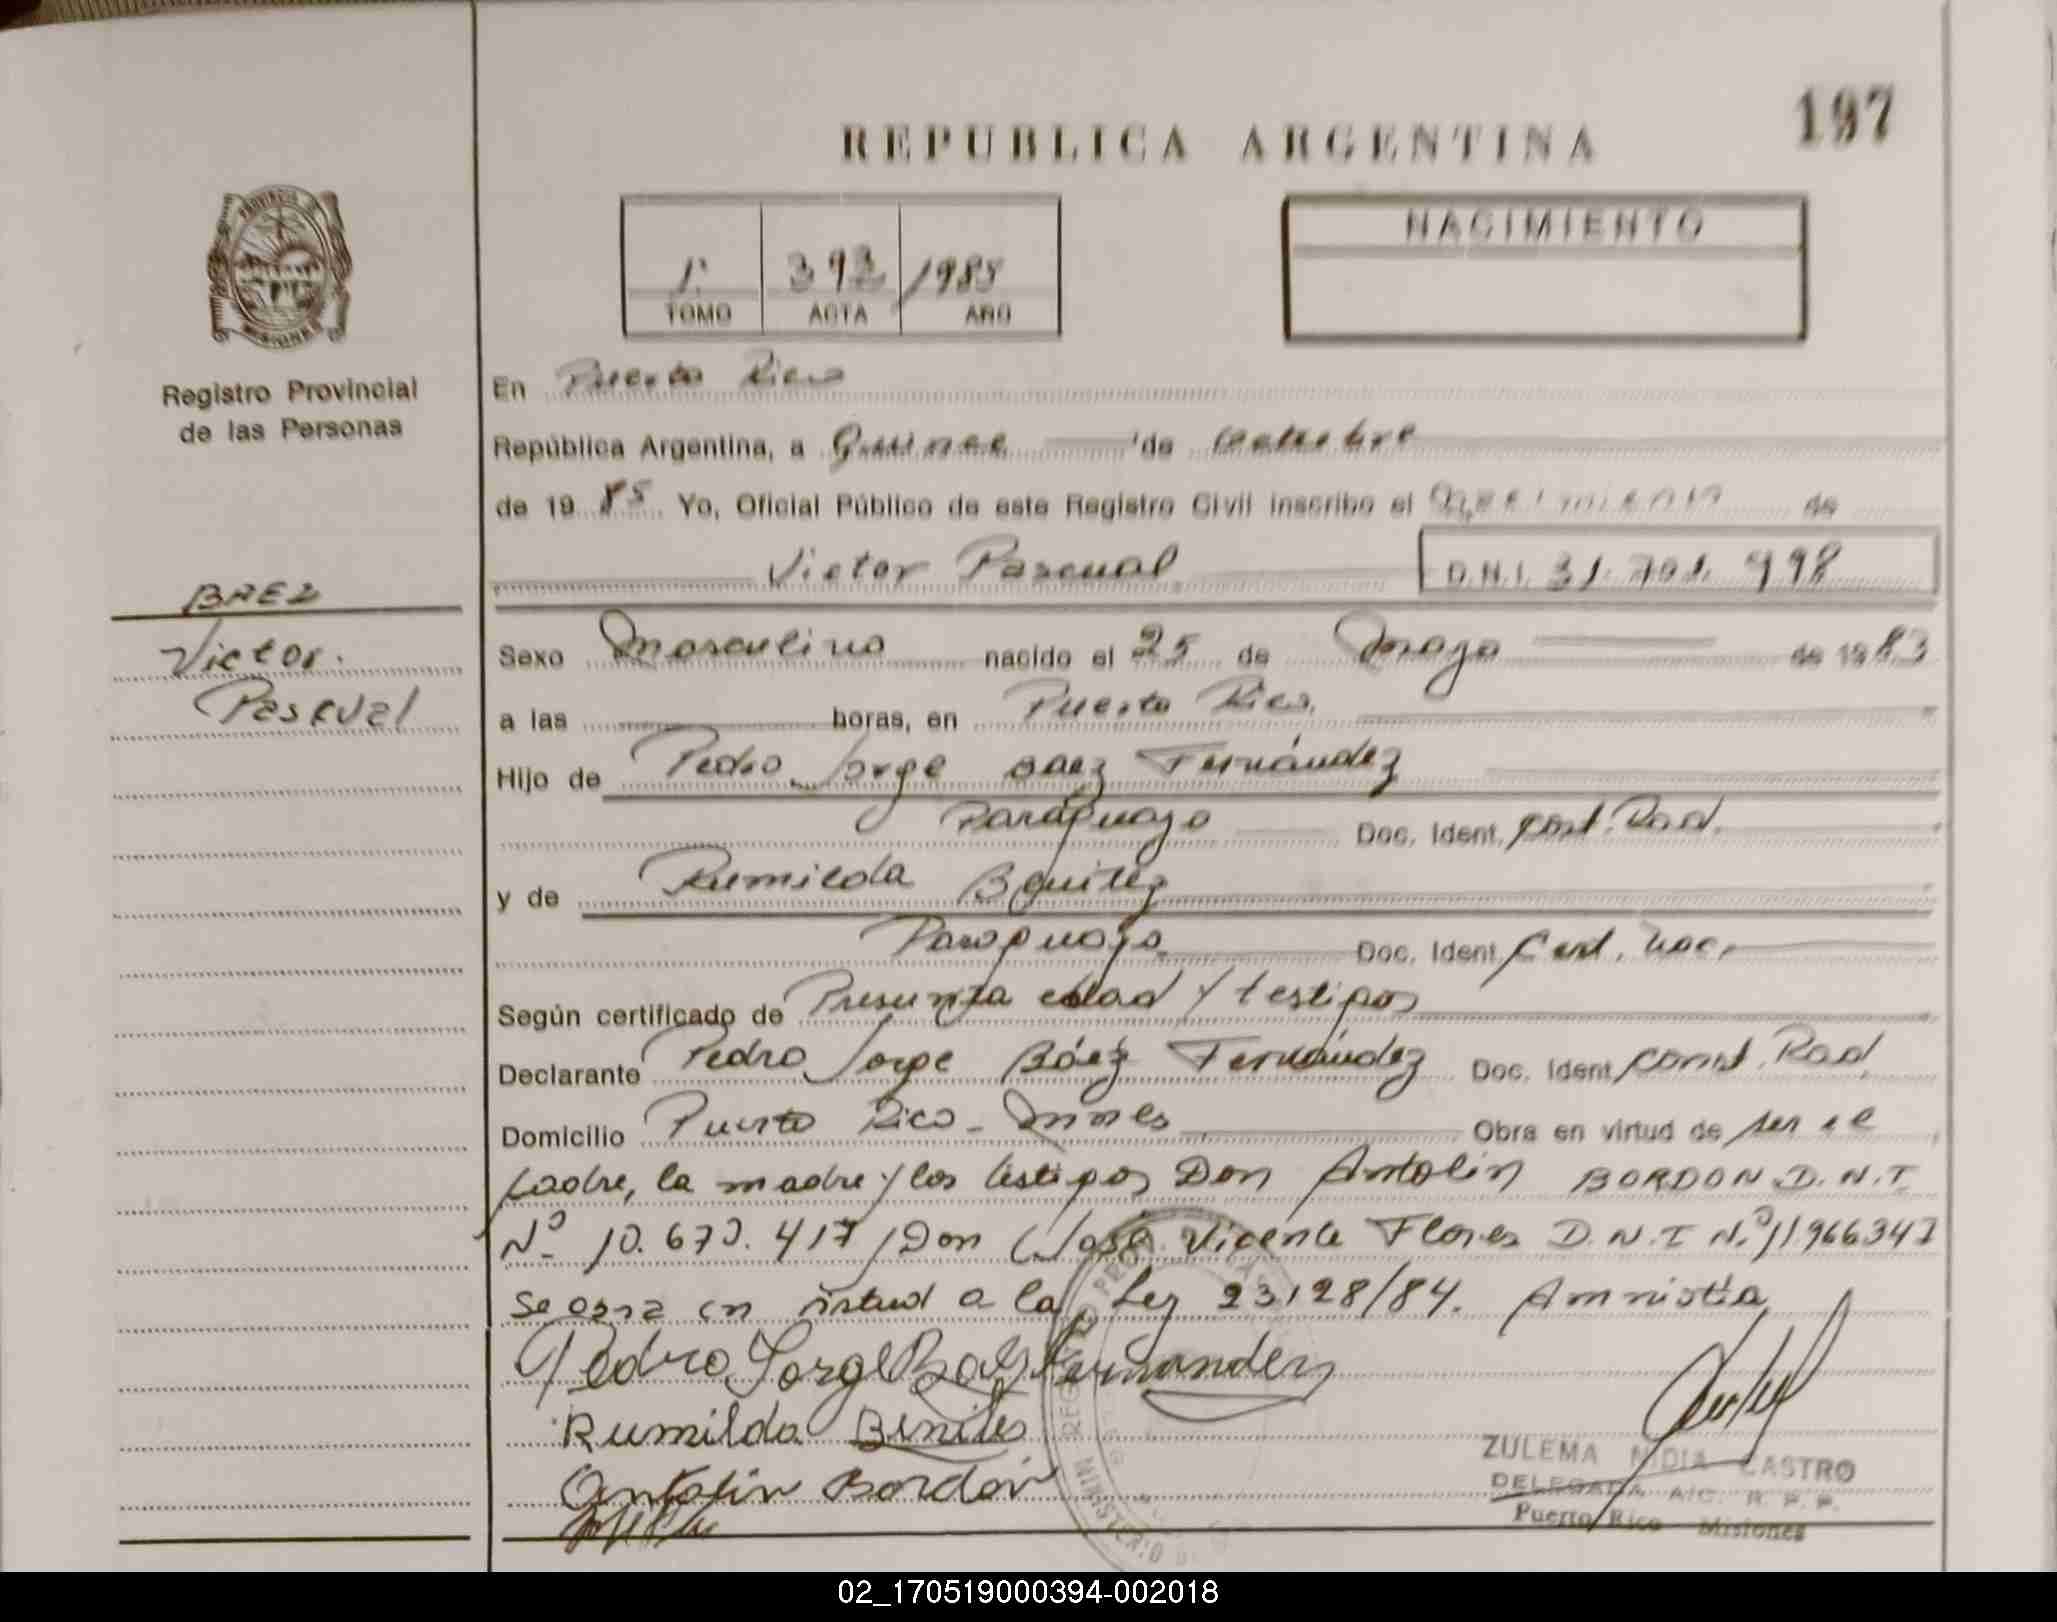 197
REPUBLICA ARGENTINA
NACIMIENTO
1º 393 1985
TOMO ACTA AÑO
PROVINCIA DE MISIONES
Registro Provincial
de las Personas
En Puerto Rico
República Argentina, a Quince de Octubre
de 19 85 Yo, Oficial Público de este Registro Civil inscribo el nacimiento de
Victor Pascual D.N.I. 31.701.998
BAEZ
Victor
Pascual
Sexo Masculino nacido el 25 de Mayo de 1983
a las horas, en Puerto Rico,
Hijo de Pedro Jorge Báez Fernández
Paraguayo Doc. Ident. Const. Rad.
y de Rumilda Benitez
Paraguaya Doc. Ident. Cert. Nac.
Según certificado de Presunta edad y testigos
Declarante Pedro Jorge Báez Fernández Doc. Ident. Const. Rad.
Domicilio Puerto Rico - Mnes Obra en virtud de ser el
padre, la madre y los testigos Don Antolin BORDON D.N.I.
Nº 10.673.417 y Don José Vicente Flores D.N.I Nº 11966347
se obra en virtud a la Ley 23128/84. Amnistía
Pedro Jorge Baez Fernandez
Rumilda Benites
Antolin Bordón
ZULEMA NIDIA CASTRO
DELEGADA A/C. R. P. P.
Puerto Rico - Misiones
REGISTRO MINISTERIO
02_170519000394-002018